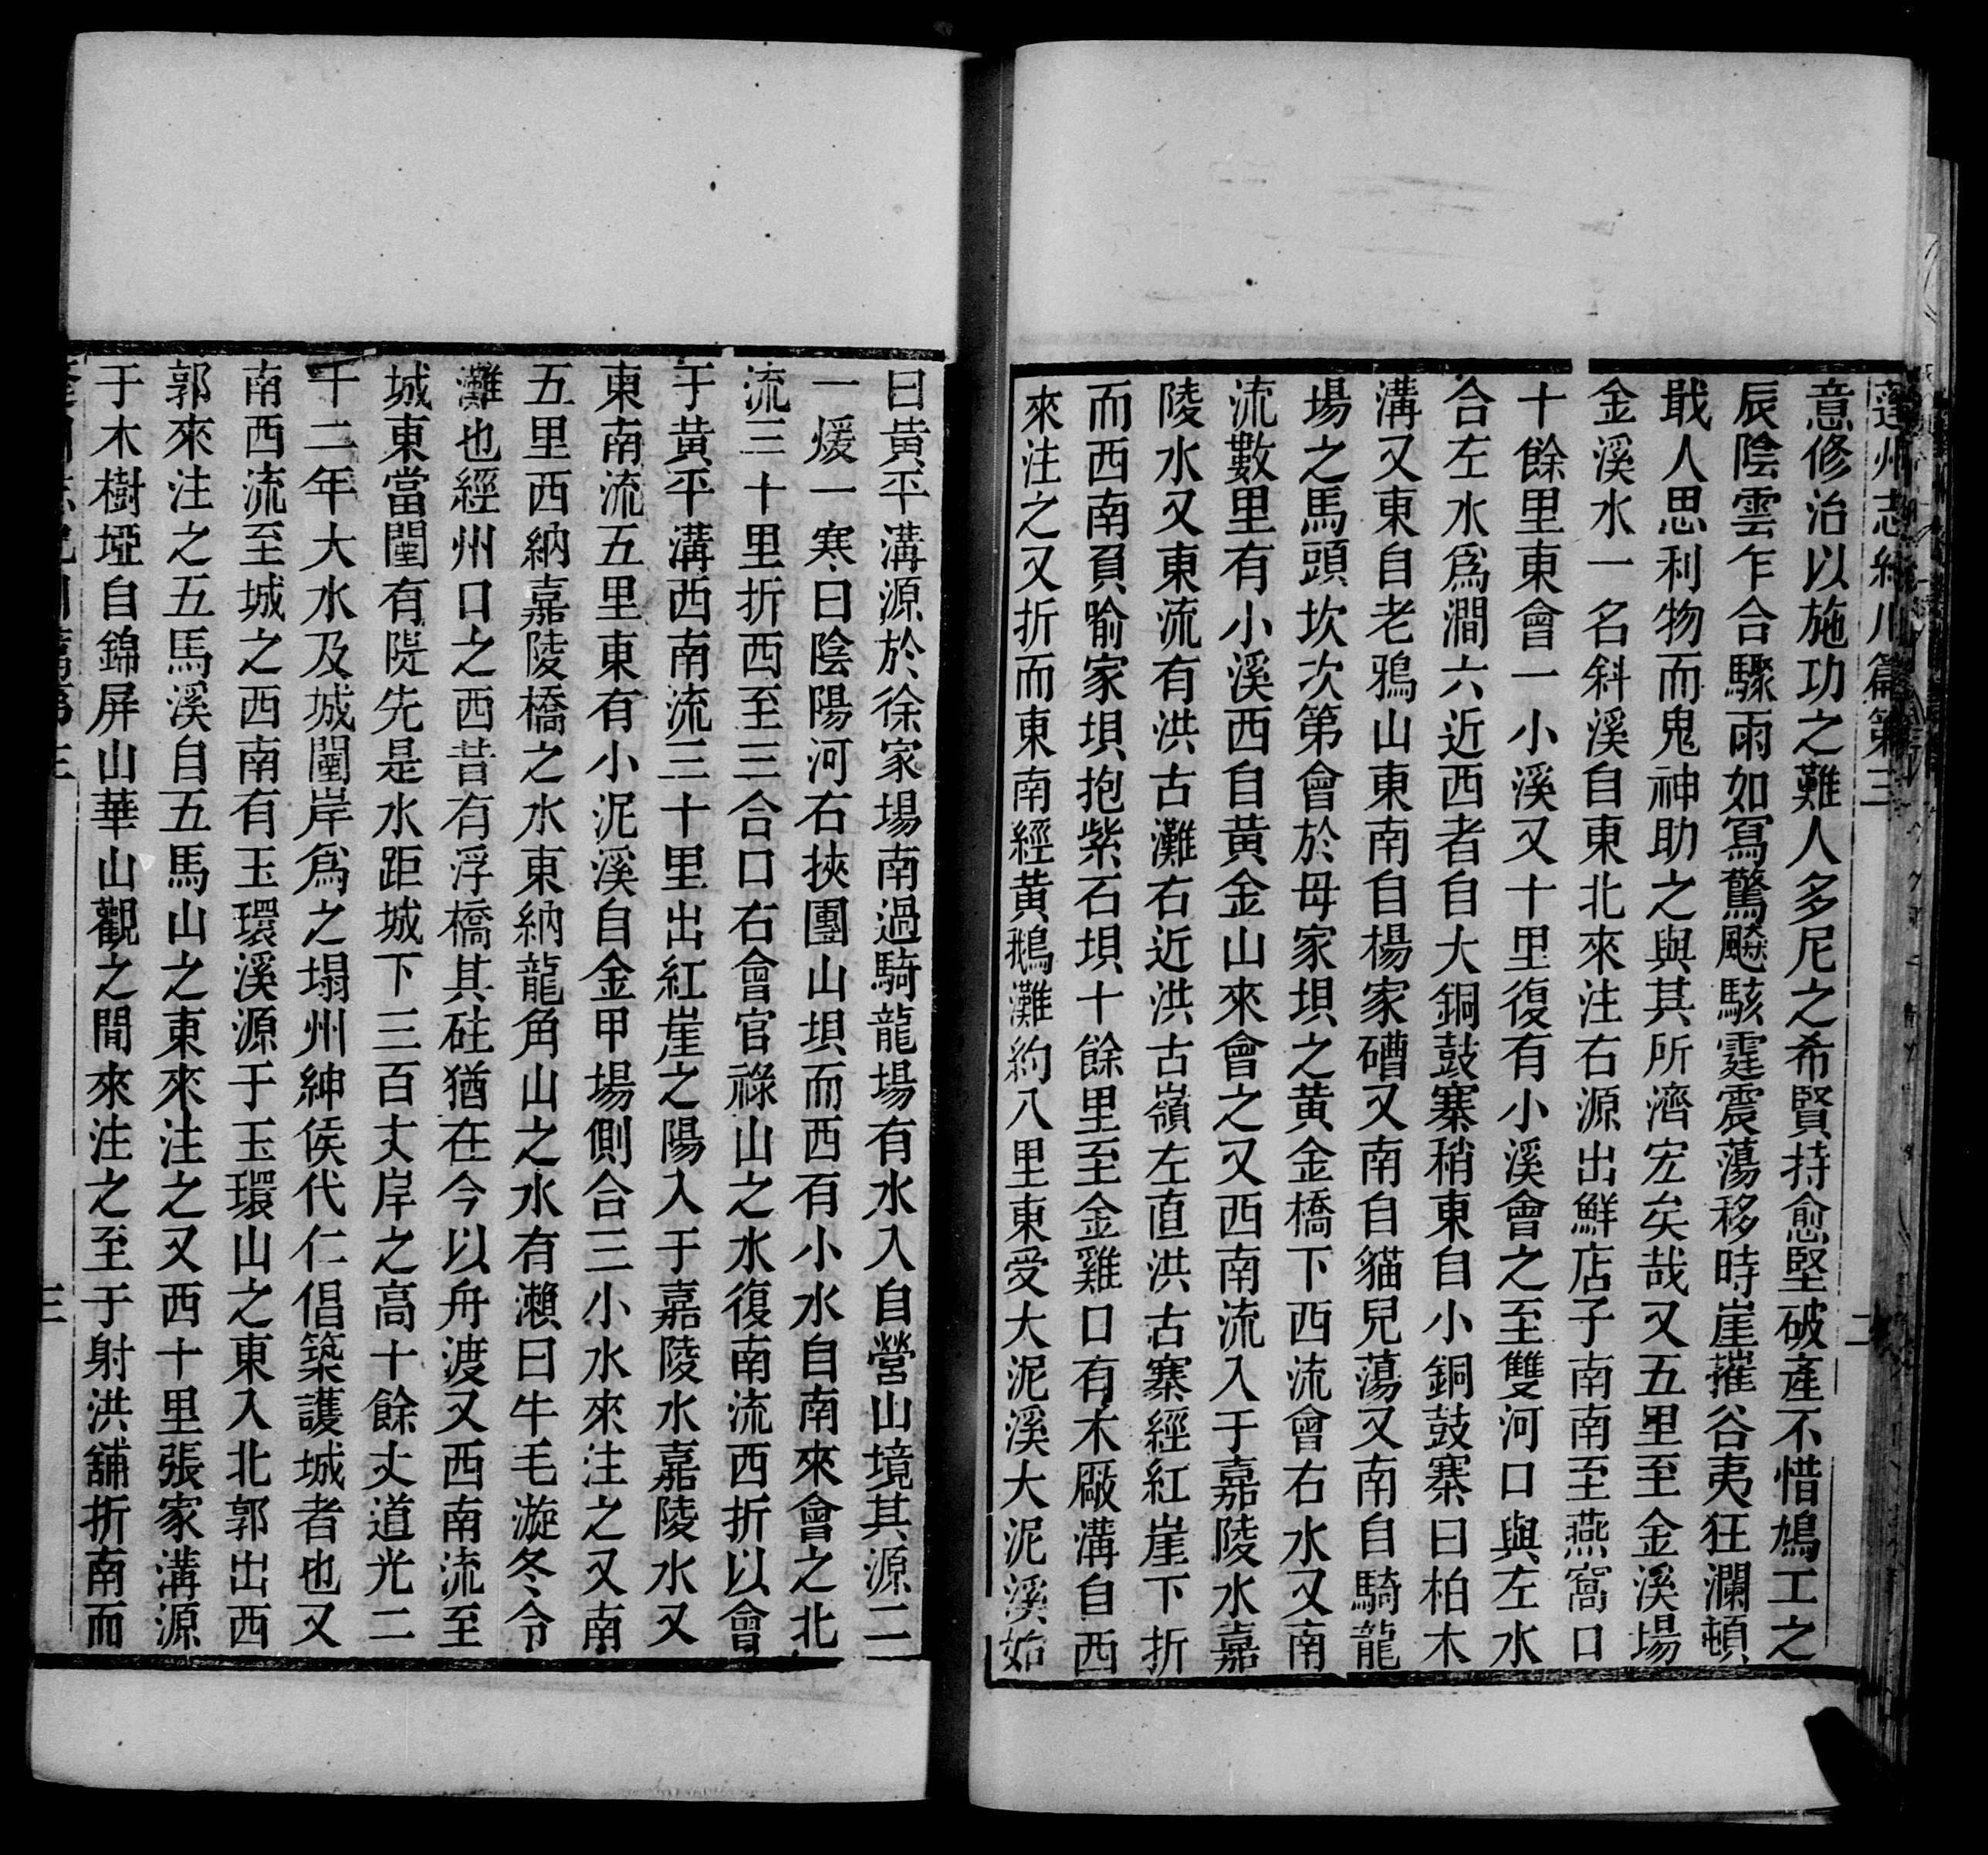 蓬州志紀川篇第三
二
意修治以施功之難人多尼之希賢持愈堅破產不惜鳩工之
辰陰雲乍合驟雨如寫驚飈駭霆震蕩移時崖摧谷夷狂瀾頓
戢人思利物而鬼神助之與其所濟宏矣哉又五里至金溪場
金溪水一名斜溪自東北來注右源出鮮店子南南至燕窩口
十餘里東會一小溪又十里復有小溪會之至雙河口與左水
合左水爲澗六近西者自大銅鼓寨稍東自小銅鼓寨曰柏木
溝又東自老鴉山東南自楊家磳又南自貓兒蕩又南自騎龍
場之馬頭坎次第會於毋家垻之黃金橋下西流會右水又南
流數里有小溪西自黃金山來會之又西南流入于嘉陵水嘉
陵水又東流有洪古灘右近洪古嶺左直洪古寨經紅崖下折
而西南負喻家垻抱紫石垻十餘里至金雞口有木厰溝自西
來注之又折而東南經黃鵝灘約八里東受大泥溪大泥溪始
曰黃平溝源於徐家場南過騎龍場有水入自營山境其源二
一煖一寒曰陰陽河右挾團山垻而西有小水自南來會之北
流三十里折西至三合口右會官祿山之水復南流西折以會
于黃平溝西南流三十里出紅崖之陽入于嘉陵水嘉陵水又
東南流五里東有小泥溪自金甲場側合三小水來注之又南
五里西納嘉陵橋之水東納龍角山之水有瀨曰牛毛漩冬令
灘也經州口之西昔有浮橋其砫猶在今以舟渡又西南流至
城東當闉有隄先是水距城下三百丈岸之高十餘丈道光二
十二年大水及城闉岸爲之塌州紳侯代仁倡築護城者也又
南西流至城之西南有玉環溪源于玉環山之東入北郭出西
郭來注之五馬溪自五馬山之東來注之又西十里張家溝源
于木樹埡自錦屏山華山觀之間來注之至于射洪舖折南而
三